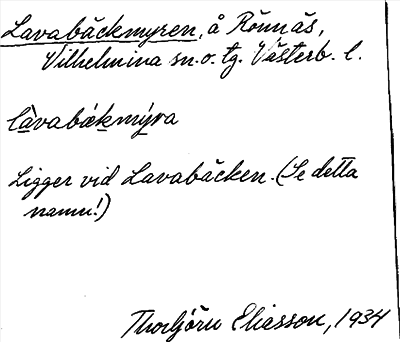 Lavabäckmyren, å Rönnäs,
Vilhelmina sn. o. tg. Västerb. l.
làvabækmýra
Ligger vid Lavabäcken. (Se detta
namn!)
Thorbjörn Eliasson, 1934